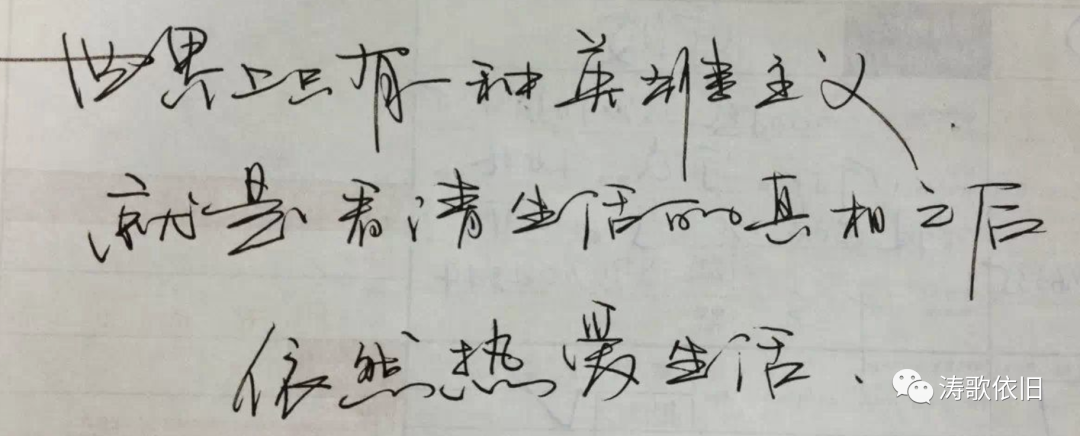 世界上只有一种英雄主义.
就是看清生活的真相之后
依然热爱生活.
涛歌依旧